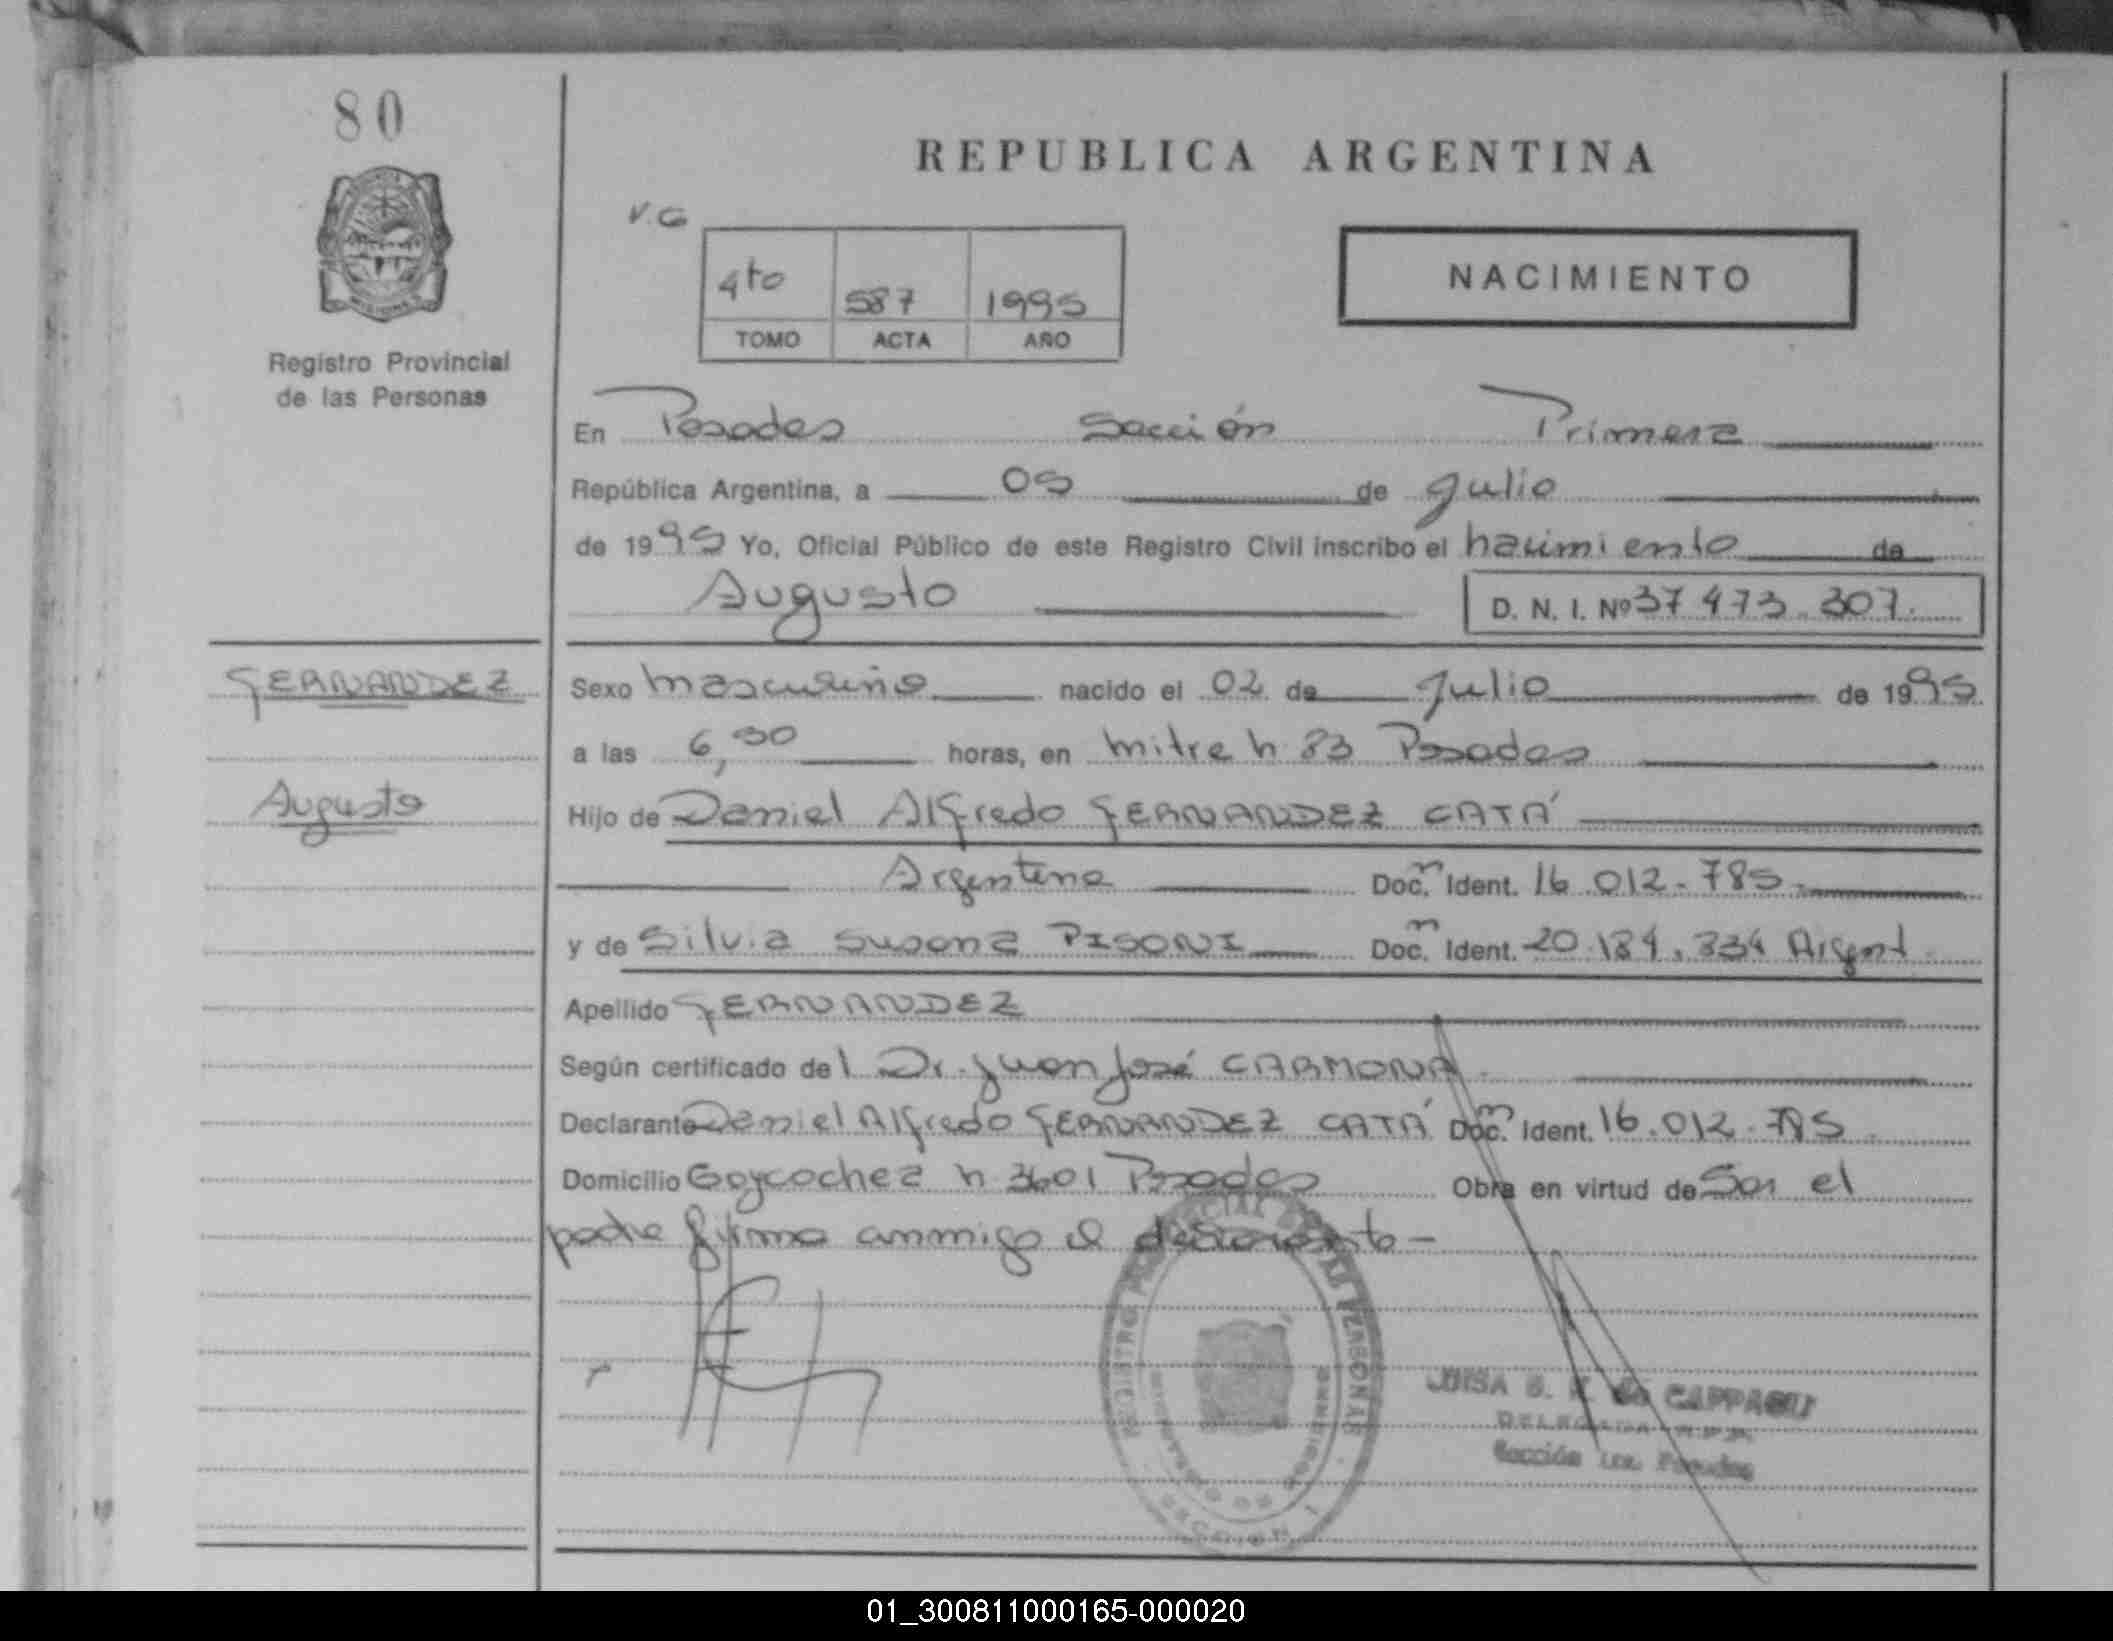 80
REPUBLICA ARGENTINA
V.G
4to 587 1995
TOMO ACTA AÑO
NACIMIENTO
Registro Provincial
de las Personas
En Posadas Sección Primera
República Argentina, a 05 de Julio
de 1995 Yo, Oficial Público de este Registro Civil inscribo el nacimiento de
Augusto D. N. I. Nº 37.473.307.
FERNANDEZ
Sexo masculino nacido el 02 de Julio de 1995
a las 6,30 horas, en mitre n 83 Posadas
Augusto
Hijo de Daniel Alfredo FERNANDEZ CATÁ
Argentino Doc. Ident. 16.012.785
y de Silvia Susana PISONI Doc. Ident. 20.184.334 Argent
Apellido FERNANDEZ
Según certificado del Dr. Juan José CARMONA
Declarante Daniel Alfredo FERNANDEZ CATÁ Doc. Ident. 16.012.785
Domicilio Goycochea n 3601 Posadas Obra en virtud de Ser el
padre firma conmigo el declarante -
REGISTRO PROVINCIAL DE LAS PERSONAS
SECCION 1
LUISA CAPPAGLI
DELEGADA
Sección 1ra. Posadas
01_300811000165-000020